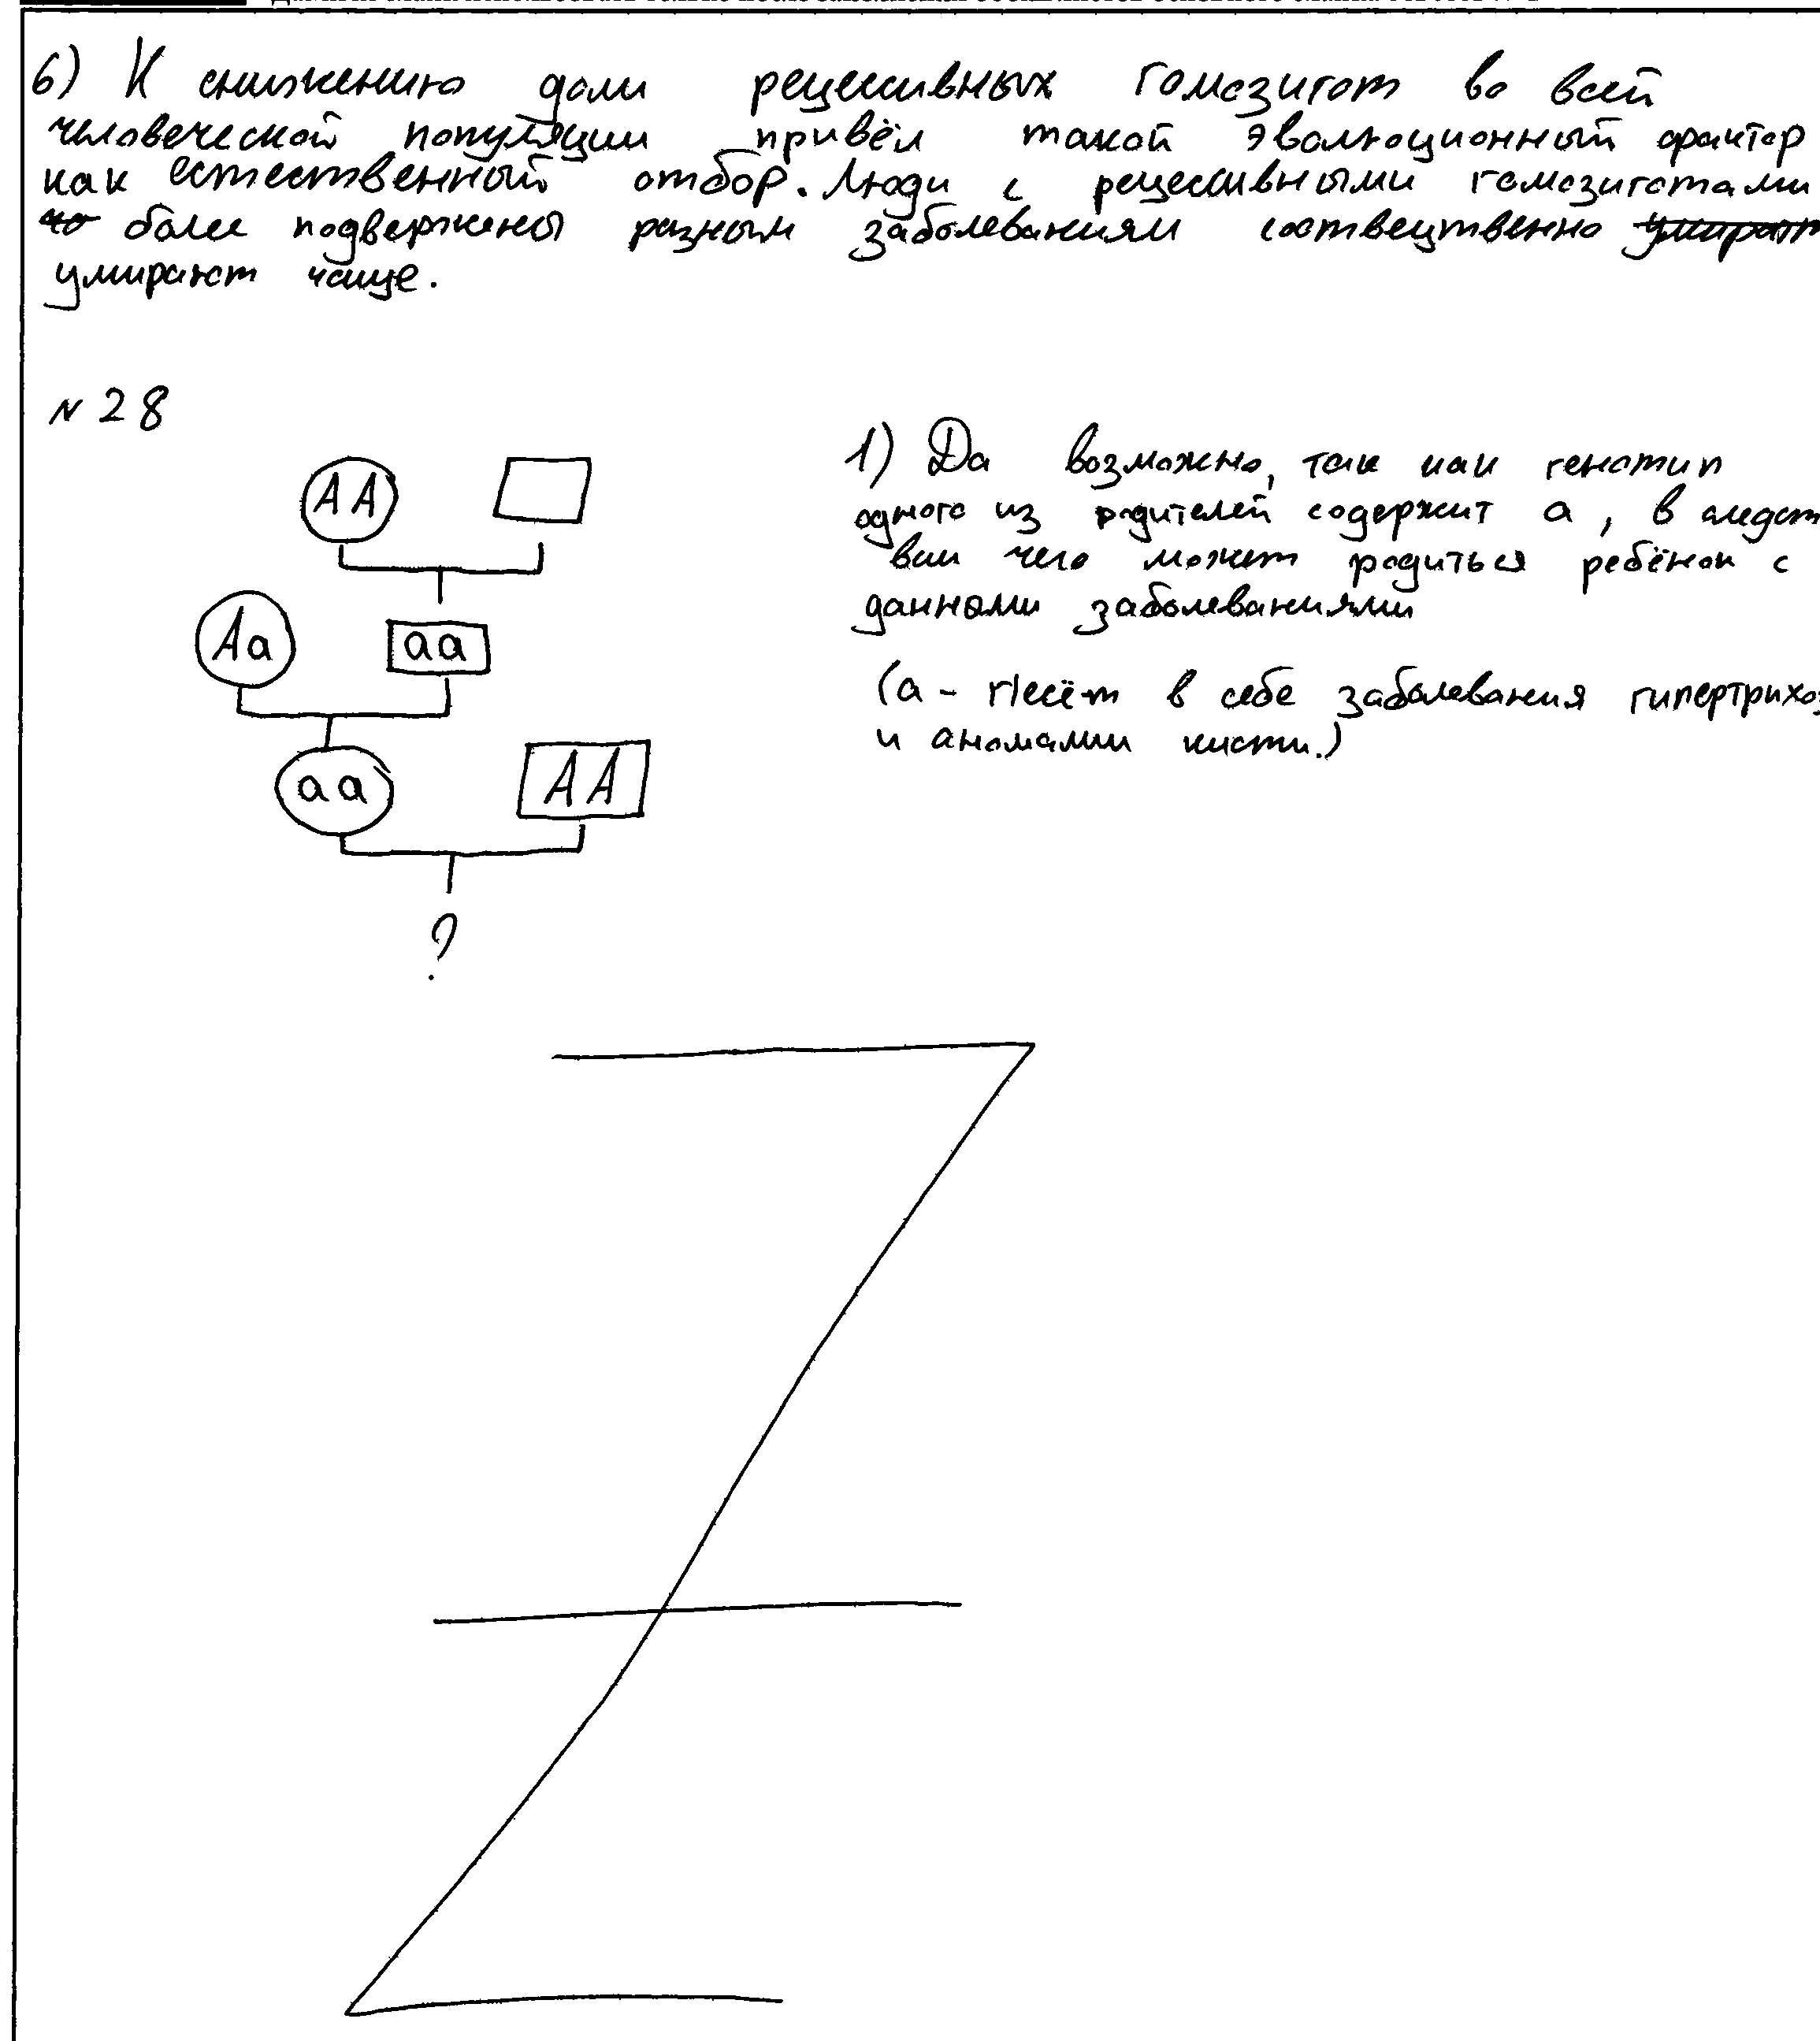 6) К снижению доли рецессивных гомозигот во всей
человеческой популяции привёл такой эволюционный фактор
как естественный отбор. Люди с рецессивными гомозиготами
более подвержены разным заболеваниям соотвецтвенно
умирают чаще.
№ 28
1) Да возможно, так как генотип
одного из родителей содержит а, в следст
вии чего может родиться ребёнок с
данными заболеваниями
(а - несёт в себе заболевания гипертрихоз
и аномалии кисти.)
АА
Аа аа
аа АА
?